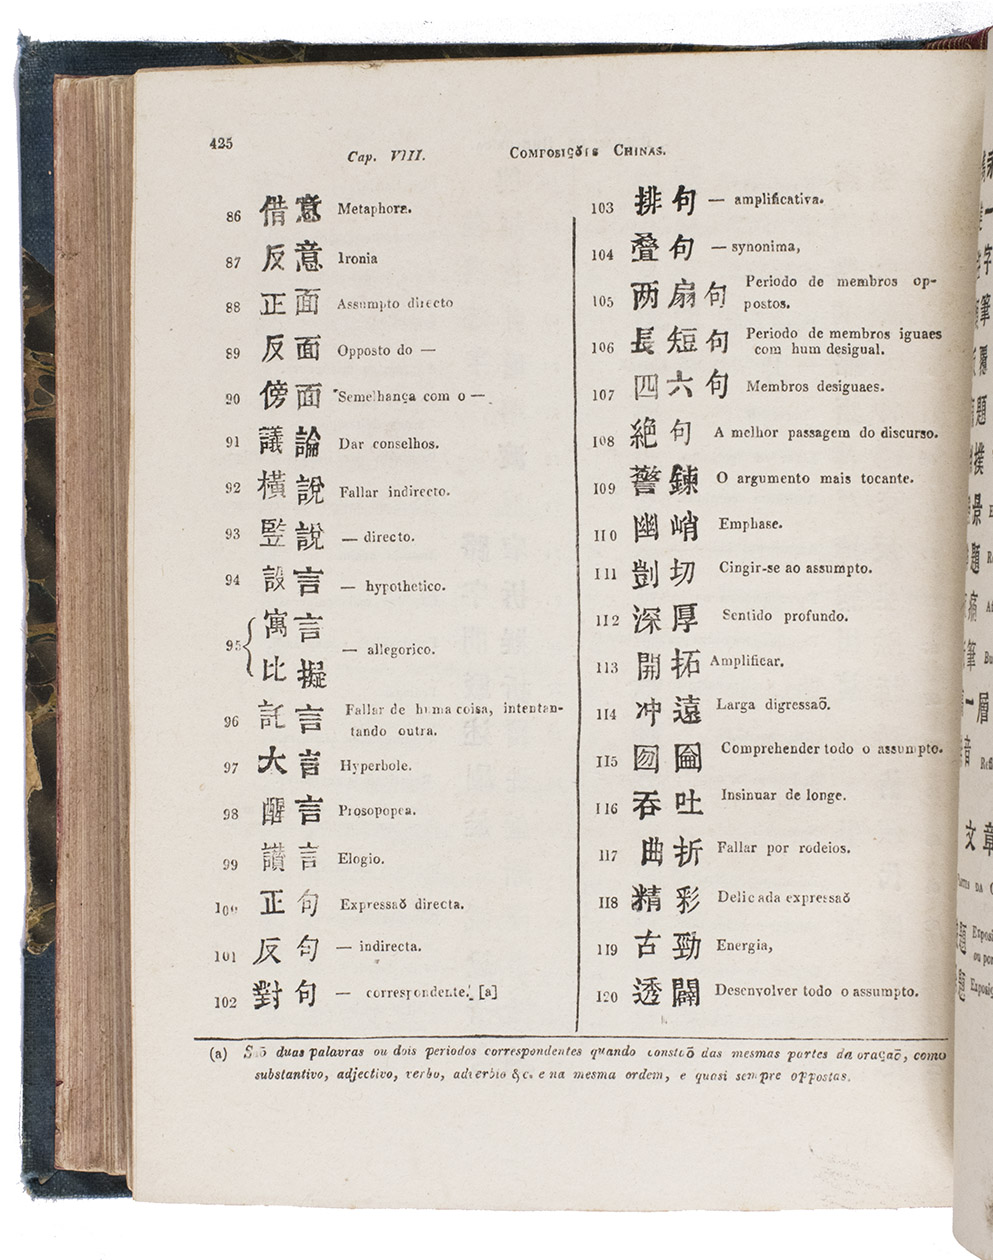 425
Cap. VIII. COMPOSIÇÕES CHINAS.
86 借意 Metaphora.
87 反意 Ironia
88 正面 Assumpto directo
89 反面 Opposto do —
90 傍面 Semelhança com o —
91 議論 Dar conselhos.
92 橫說 Fallar indirecto.
93 竪說 — directo.
94 設言 — hypothetico.
95 寓言
比擬 — allegorico.
96 託言 Fallar de huma coisa, intentan-
tando outra.
97 大言 Hyperbole.
98 醒言 Prosopopea.
99 讚言 Elogio.
100 正句 Expressaõ directa.
101 反句 — indirecta.
102 對句 — correspondente. [a]
103 排句 — amplificativa.
104 疊句 — synonima,
105 两扇句 Periodo de membros op-
postos.
106 長短句 Periodo de membros iguaes
com hum desigual.
107 四六句 Membros desiguaes.
108 絶句 A melhor passagem do discurso.
109 警鍊 O argumento mais tocante.
110 幽峭 Emphase.
111 剴切 Cingir-se ao assumpto.
112 深厚 Sentido profundo.
113 開拓 Amplificar.
114 冲遠 Larga digressaõ.
115 囫圇 Comprehender todo o assumpto.
116 吞吐 Insinuar de longe.
117 曲折 Fallar por rodeios.
118 精彩 Delicada expressaõ
119 古勁 Energia,
120 透闢 Desenvolver todo o assumpto.
(a) Saõ duas palavras ou dois periodos correspondentes quando constaõ das mesmas partes da oraçaõ, como
substantivo, adjectivo, verbo, adverbio &c. e na mesma ordem, e quasi sempre oppostas.
字
筆
覆
題
撲
景
題
痛
筆
一層
音
文章
題
題